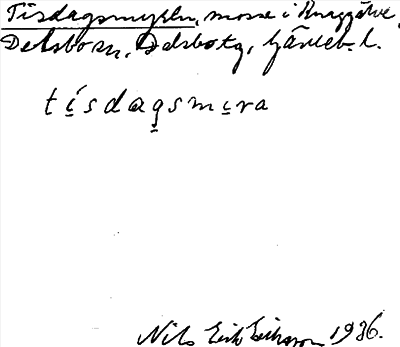 Tisdagsmyrln, mosse i Knaggälve,
Delsbo sn, Delsbo tg, Gävleb. l.
tísdagsmyra
Nils Erik Eriksson 1936.